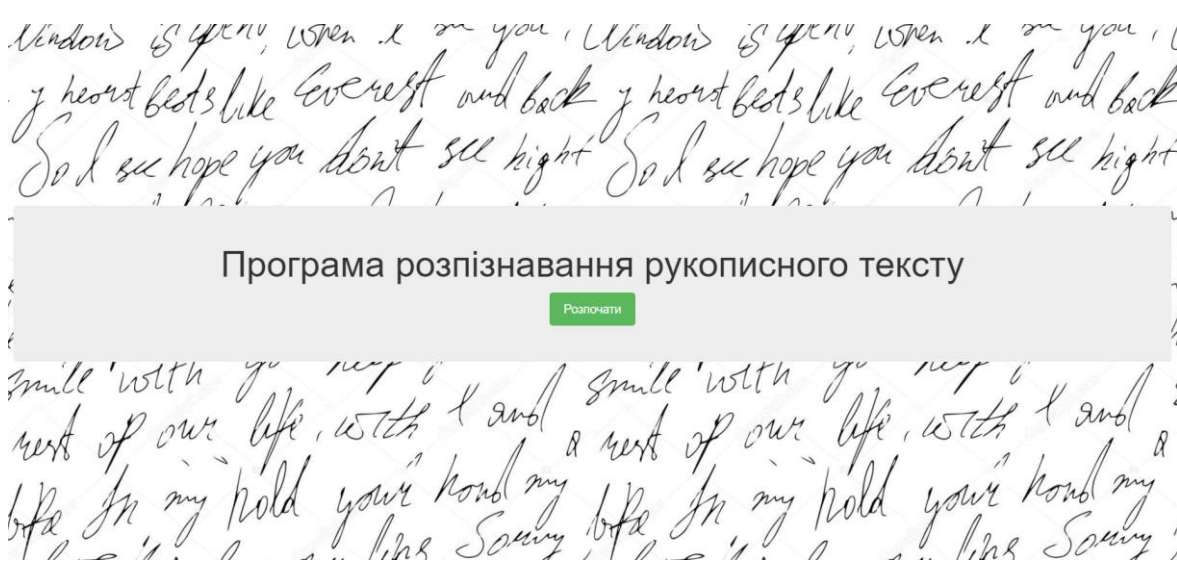 Window is open, when I see you, Window is open, when I see you,
y heart beats like Everest and back y heart beats like Everest and back
So I see hope you don't see hight So I see hope you don't see hight
Програма розпізнавання рукописного тексту
Розпочати
smile with smile with
rest of our life, with I and a rest of our life, with I and a
In my hold your hond my In my hold your hond my
Sorry Sorry